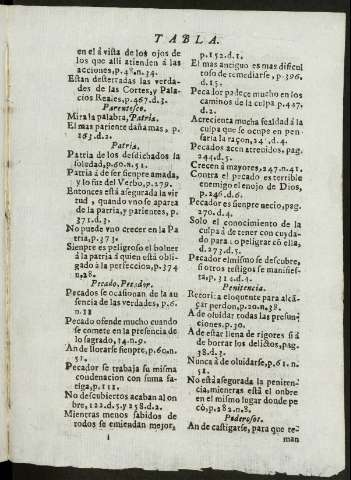 TABLA.
en el á vista de los ojos de
los que alli atienden á las
acciones, p.48.n.34.
Estan desterradas las verda-
des de las Cortes, y Pala-
cios Reales, p.467.d.3.
Parentesco.
Mira la palabra, Patria.
El mas pariente daña mas, p.
163.d.2.
Patria.
Patria de los desdichados la
soledad, p.60.n.51.
Patria á de ser siempre amada,
y lo fue del Verbo, p.279.
Entonces está asegurada la vir
tud, quando vno se aparea
de la patria, y parientes, p.
371.d.3.
No puede vno crecer en la Pa
tria, p.373.
Siempre es peligroso el bolver
á la patria á quien está obli-
gado á la perfeccion, p.374
n.28.
Pecado, Pecador.
Pecados se ocasionan de la au
sencia de las verdades, p.6.
n.11
Pecado ofende mucho quando
se comete en la presencia de
lo sagrado, 14.n.9.
An de llorarse siempre, p.60.n.
51.
Pecador se trabaja su misma
condenacion con suma fa-
tiga, p.111.
No descubiertos acaban al on
bre, 122.d.5.y 258.d.2.
Mientras menos sabidos de
todos se emiendan mejor,
p.152.d.1.
El mas antiguo es mas dificul
toso de remediarse, p.396.
d.15.
Pecador padece mucho en los
caminos de la culpa p.427.
d.2.
Acrecienta mucha fealdad á la
culpa que se ocupe en pen-
sarla la raçon, 24.d.4.
Pecados acen atrevidos, pag.
244.d.5.
Crecen á mayores, 247.n.41.
Contra el pecado es terrible
enemigo el enojo de Dios,
p.246.d.6.
Pecador es sienpre necio, pag.
270.d.4.
Solo el conocimiento de la
culpa á de tener con cuyda-
do para no peligrar có ella,
d.273.d.5.
Pecador el mismo se descubre,
si otros testigos se manifies-
ta, p.314.d.4.
Penitencia.
Retorica eloquente para alcá-
çar perdon, p.20.n.38.
A de oluidar todas las presun-
ciones, p.30.
A de estar llena de rigores si á
de borrar los delictos, pag.
38.d.3.
Nunca á de oluidarse, p.61.n.
51.
No está asegurada la peniten-
cia, mientras está el onbre
en el mismo lugar donde pe
có, p.282.n.8.
Poderosos.
An de castigarse, para que te-
i
man